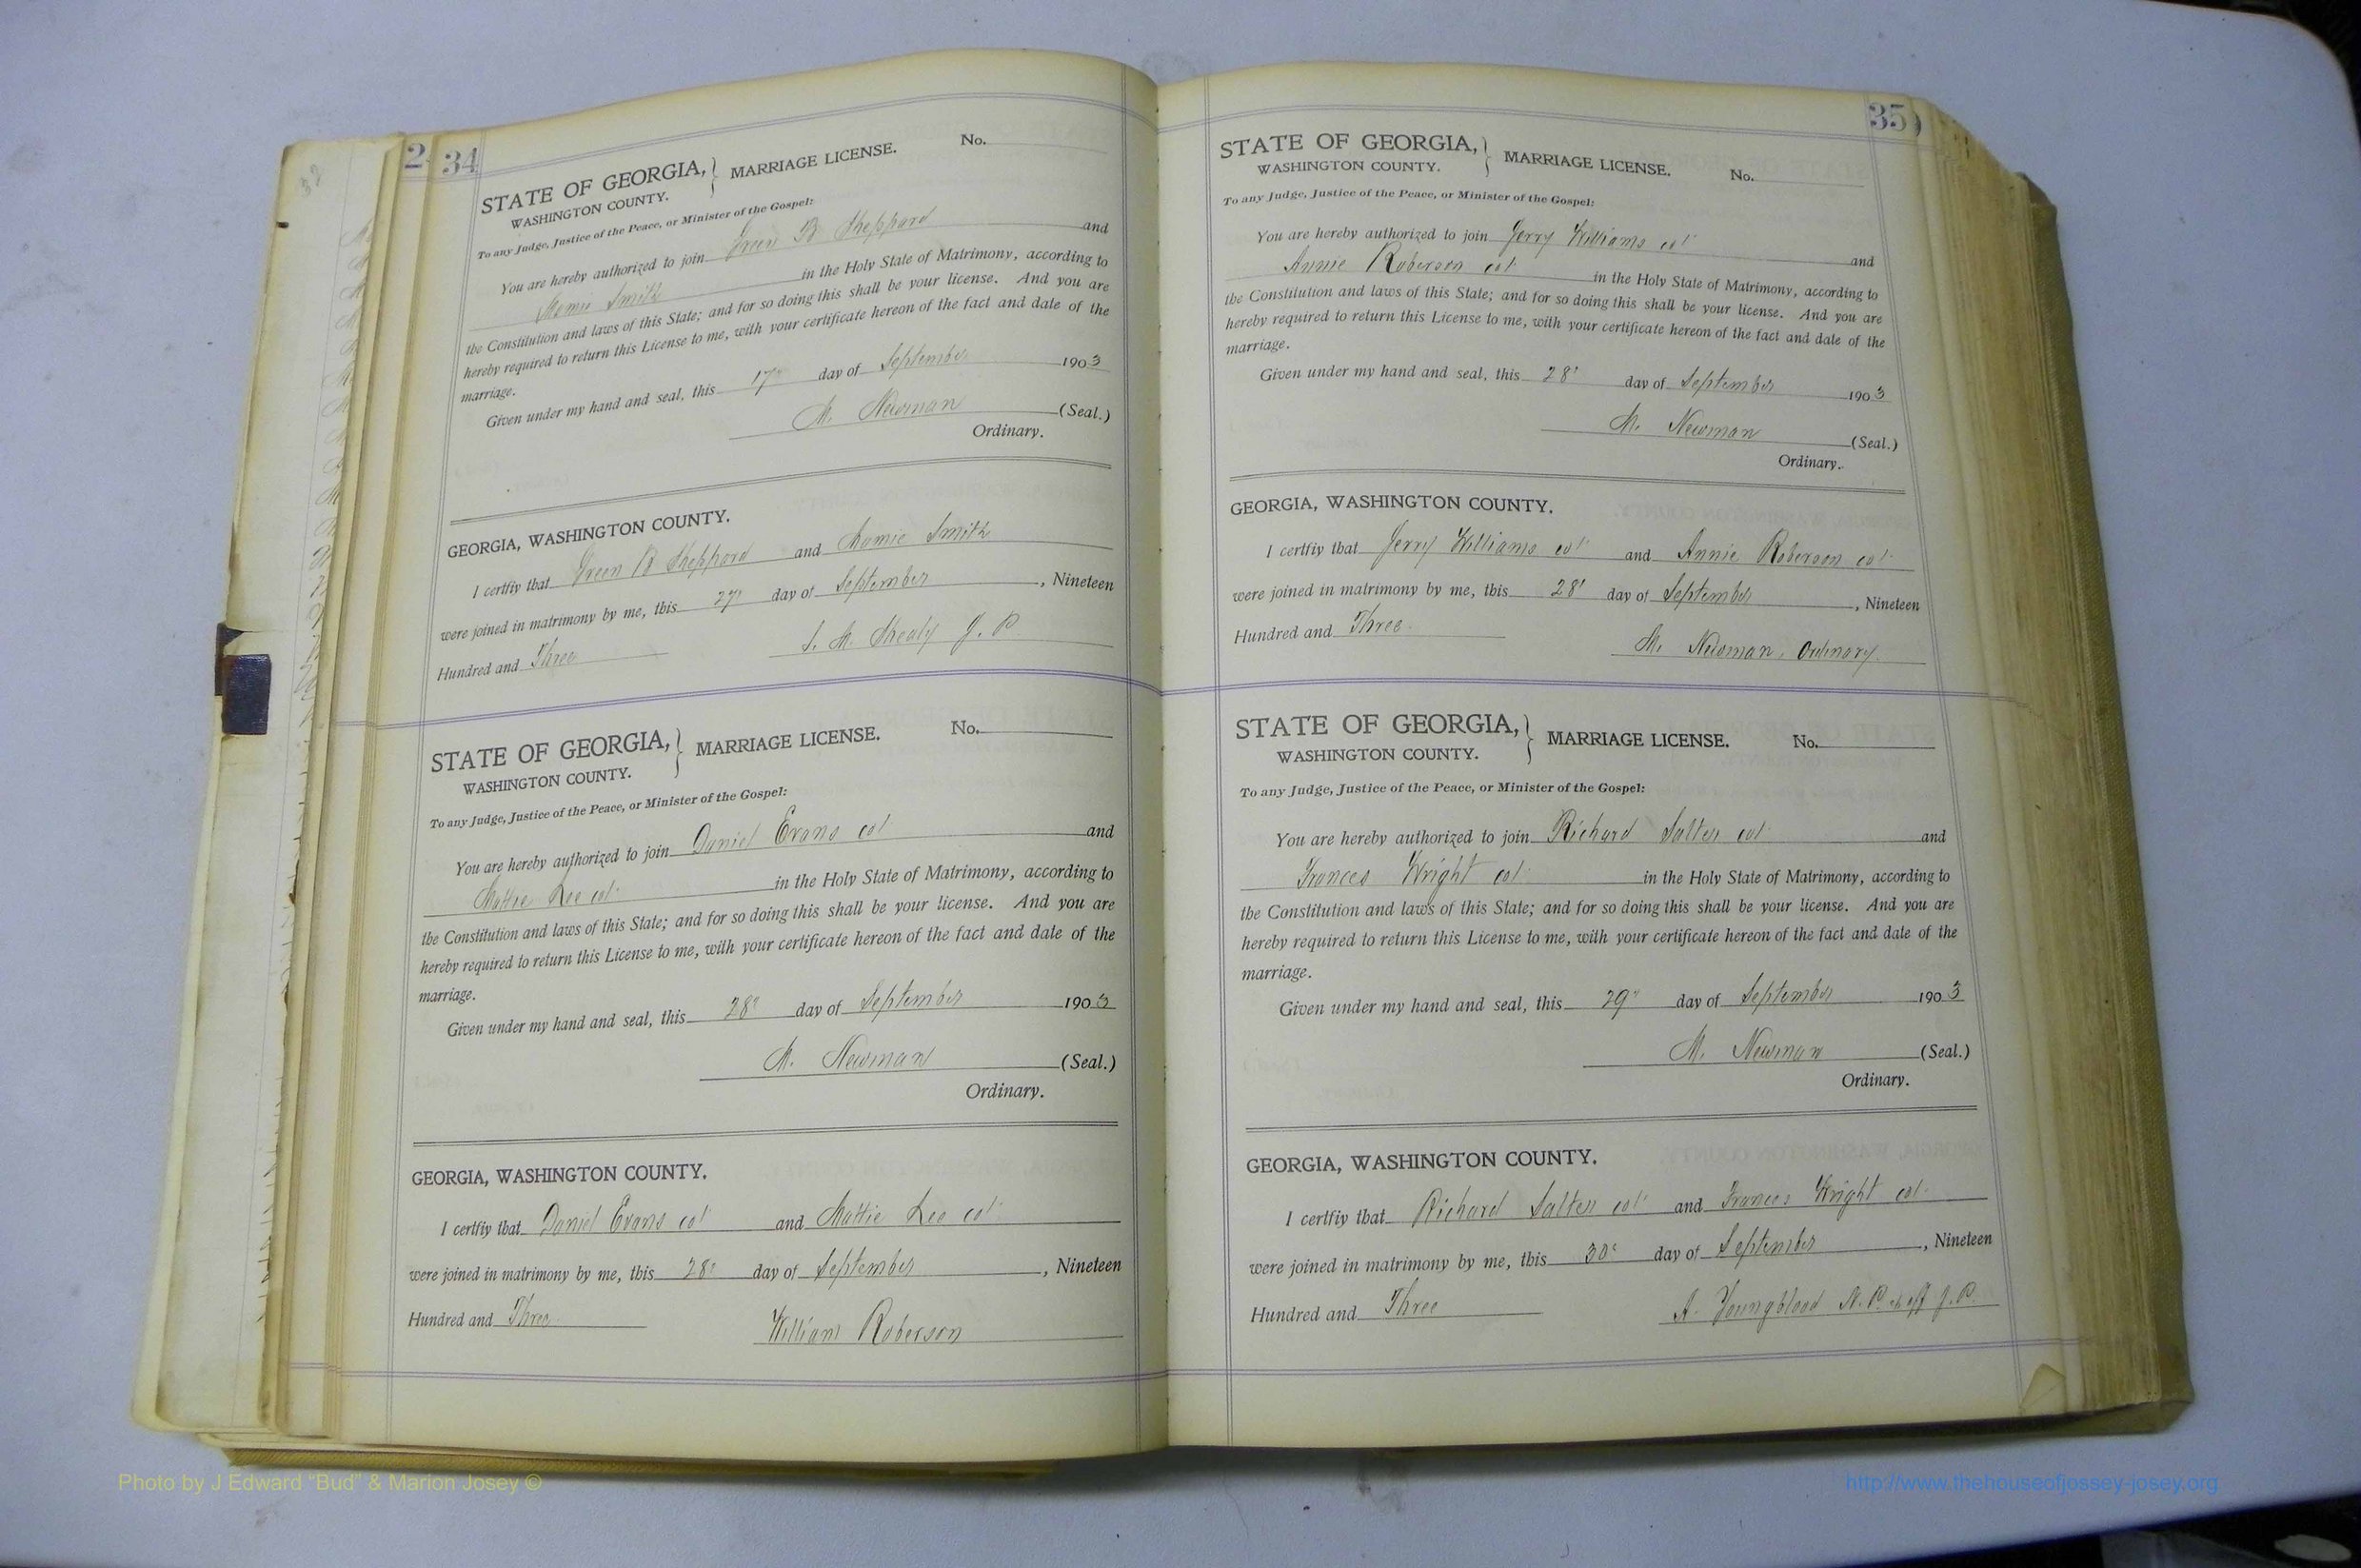 34
STATE OF GEORGIA, } MARRIAGE LICENSE. No.
WASHINGTON COUNTY.
To any Judge, Justice of the Peace, or Minister of the Gospel:
You are hereby authorized to join Green B Sheppard and
Mamie Smith in the Holy State of Matrimony, according to
the Constitution and laws of this State; and for so doing this shall be your license. And you are
hereby required to return this License to me, with your certificate hereon of the fact and date of the
marriage.
Given under my hand and seal, this 17" day of September 1903
M. Newman (Seal.)
Ordinary.
GEORGIA, WASHINGTON COUNTY.
I certfiy that Green B Sheppard and Mamie Smith
were joined in matrimony by me, this 27" day of September, Nineteen
Hundred and Three
J. P.
STATE OF GEORGIA, } MARRIAGE LICENSE. No.
WASHINGTON COUNTY.
To any Judge, Justice of the Peace, or Minister of the Gospel:
You are hereby authorized to join Daniel Evans col and
Mattie Lee col in the Holy State of Matrimony, according to
the Constitution and laws of this State; and for so doing this shall be your license. And you are
hereby required to return this License to me, with your certificate hereon of the fact and date of the
marriage.
Given under my hand and seal, this 28" day of September 1903
M. Newman (Seal.)
Ordinary.
GEORGIA, WASHINGTON COUNTY.
I certfiy that Daniel Evans col and Mattie Lee col
were joined in matrimony by me, this 28" day of September, Nineteen
Hundred and Three
William Roberson
35
STATE OF GEORGIA, } MARRIAGE LICENSE. No.
WASHINGTON COUNTY.
To any Judge, Justice of the Peace, or Minister of the Gospel:
You are hereby authorized to join Jerry Williams col and
Annie Roberson col in the Holy State of Matrimony, according to
the Constitution and laws of this State; and for so doing this shall be your license. And you are
hereby required to return this License to me, with your certificate hereon of the fact and date of the
marriage.
Given under my hand and seal, this 28" day of September 1903
M. Newman (Seal.)
Ordinary.
GEORGIA, WASHINGTON COUNTY.
I certfiy that Jerry Williams col and Annie Roberson col
were joined in matrimony by me, this 28" day of September, Nineteen
Hundred and Three
M. Newman, Ordinary.
STATE OF GEORGIA, } MARRIAGE LICENSE. No.
WASHINGTON COUNTY.
To any Judge, Justice of the Peace, or Minister of the Gospel:
You are hereby authorized to join Richard Salter col and
Frances Wright col in the Holy State of Matrimony, according to
the Constitution and laws of this State; and for so doing this shall be your license. And you are
hereby required to return this License to me, with your certificate hereon of the fact and date of the
marriage.
Given under my hand and seal, this 29" day of September 1903
M. Newman (Seal.)
Ordinary.
GEORGIA, WASHINGTON COUNTY.
I certfiy that Richard Salter col and Frances Wright col
were joined in matrimony by me, this 30" day of September, Nineteen
Hundred and Three
A. Youngblood N. P. J. P.
Photo by J Edward "Bud" & Marion Josey ©
http://www.thehouseofjossey-josey.org